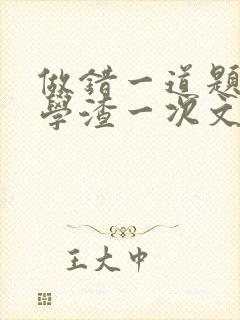 做错一道题
學渣一次文
王大中